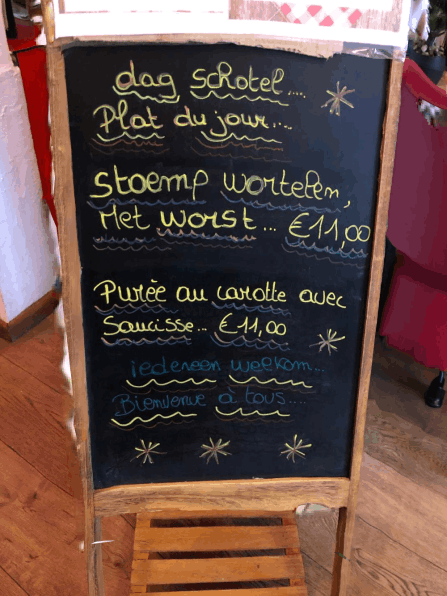 dag schotel....
Plat du jour....
Stoemp wortelen,
Met worst... €11,00
Purée au carotte avec
Saucisse... €11,00
iedereen welkom...
Bienvenue à tous....